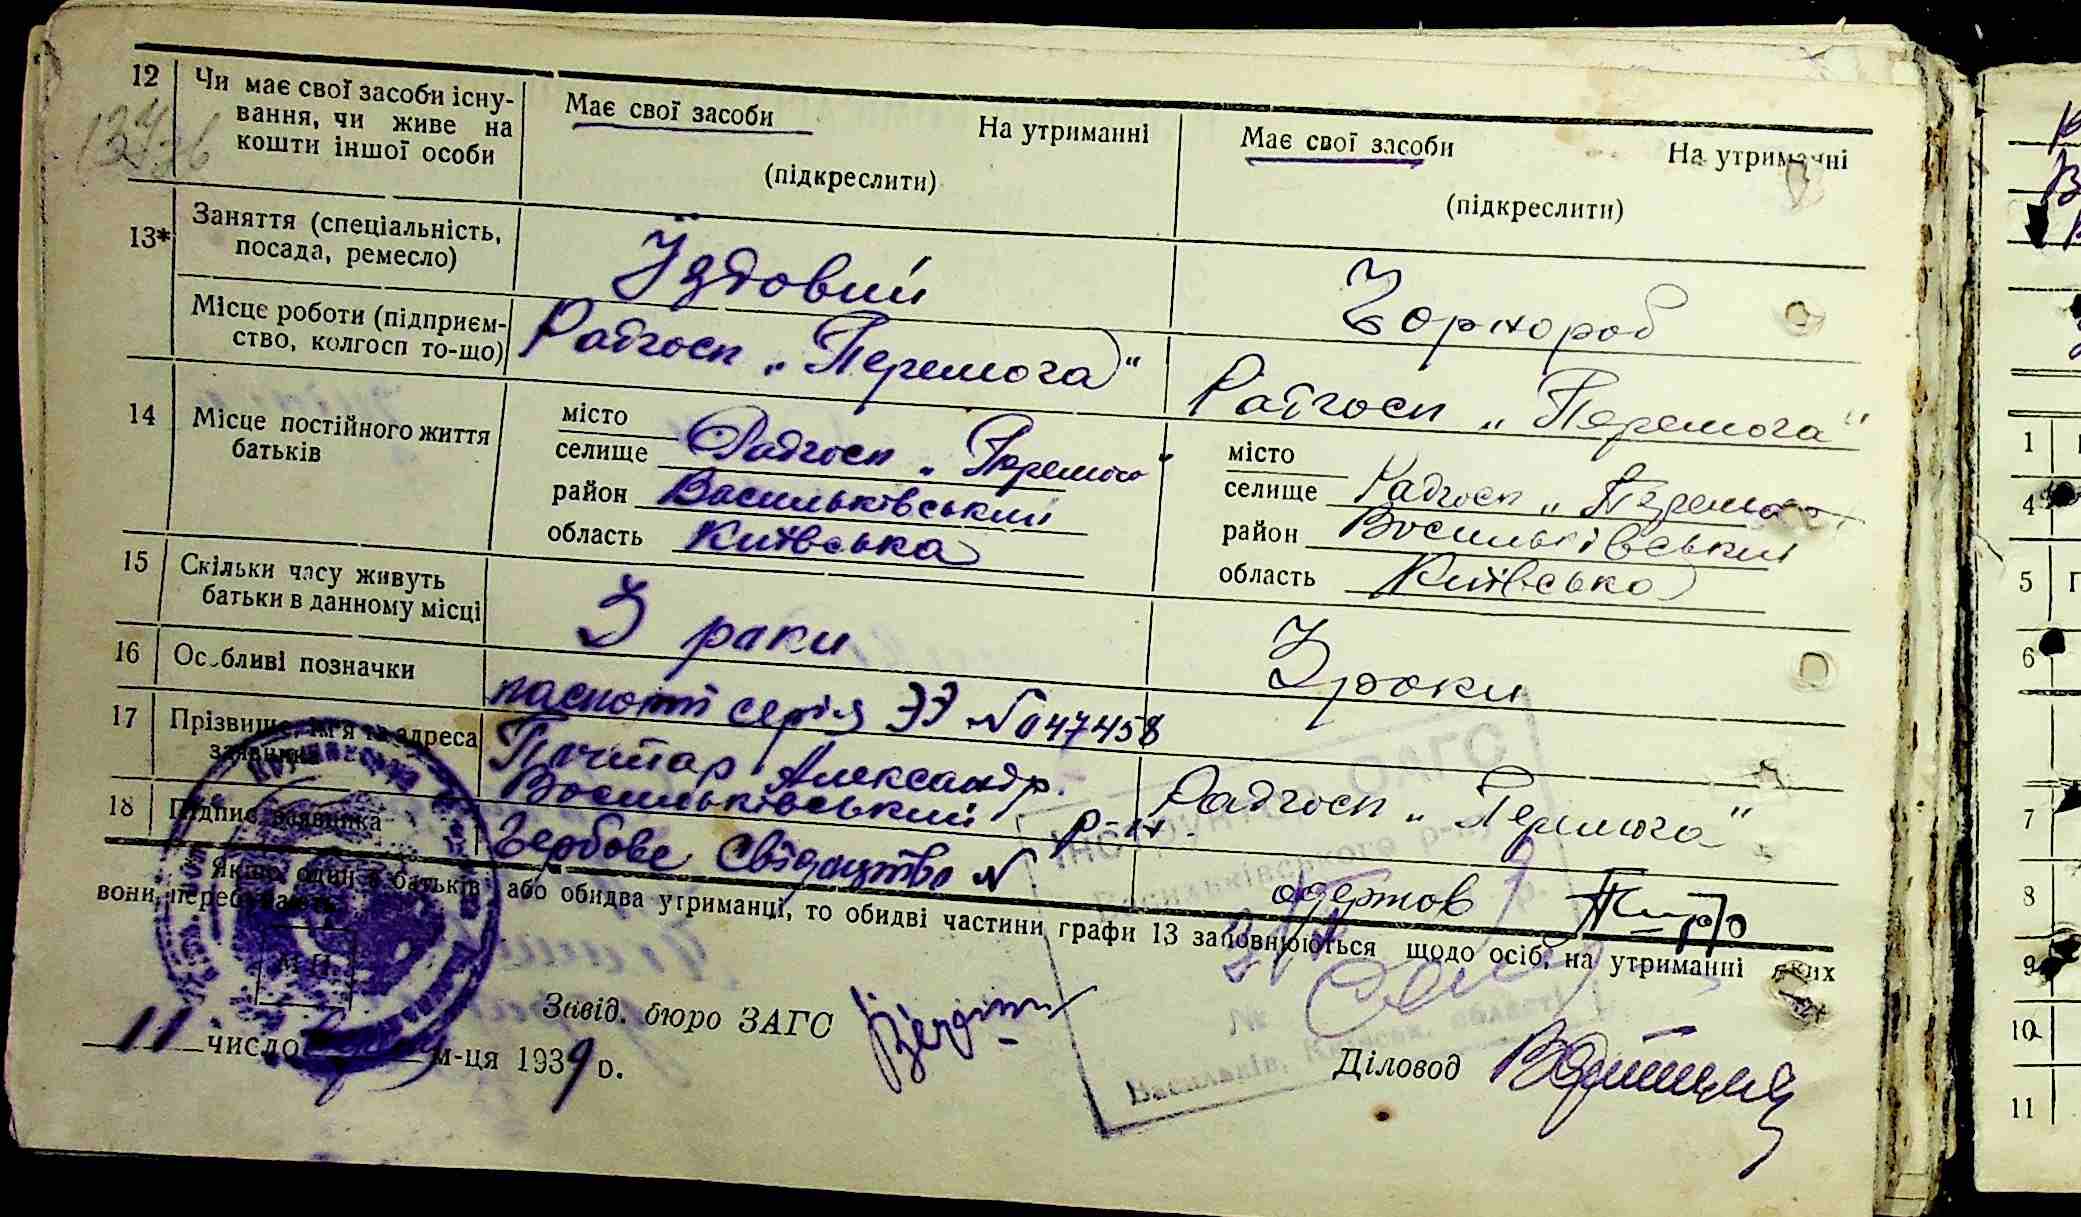 12 Чи має свої засоби існу-
вання, чи живе на
кошти іншої особи
Має свої засоби На утриманні
(підкреслити)
Має свої засоби На утриманні
(підкреслити)
13* Заняття (спеціальність,
посада, ремесло)
Їздовий
Чорнороб
Місце роботи (підприєм-
ство, колгосп то-що)
Радгосп „Перемога"
Радгосп „Перемога"
14 Місце постійного життя
батьків
місто
селище Радгосп „Перемога"
район Васильківський
область Київська
місто
селище Радгосп „Перемога"
район Васильківський
область Київська
15 Скільки часу живуть
батьки в данному місці
3 роки
3 роки
16 Особливі позначки
паспорт серія ЭЭ №047458
17 Прізвище, ім'я та адреса
заявника
Александр.
Васильківський р-н.
Радгосп „Перемога"
18 Підпис заявника
Гербове Свідоцтво №
одержав
Якщо один з батьків або обидва утриманці, то обидві частини графи 13 заповнюються щодо осіб, на утриманні яких
вони перебувають
М. П.
Завід. бюро ЗАГС
11 число м-ця 1939 р.
Діловод
1
4
5
6
7
8
9
10
11